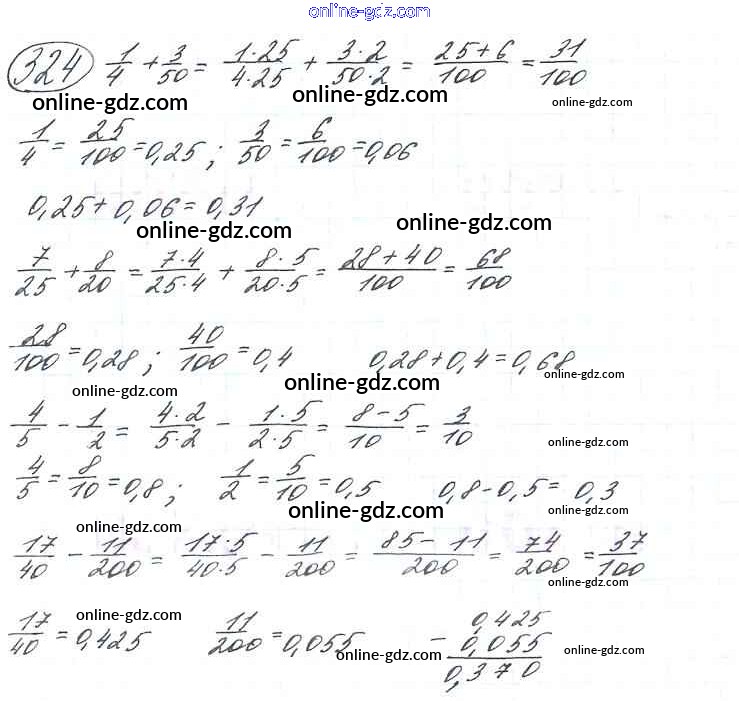 online-gdz.com
324 1/4 + 3/50 = 1·25/4·25 + 3·2/50·2 = 25+6/100 = 31/100
online-gdz.com online-gdz.com online-gdz.com
1/4 = 25/100 = 0,25 ; 3/50 = 6/100 = 0,06
0,25 + 0,06 = 0,31
online-gdz.com online-gdz.com
7/25 + 8/20 = 7·4/25·4 + 8·5/20·5 = 28+40/100 = 68/100
28/100 = 0,28 ; 40/100 = 0,4 0,28 + 0,4 = 0,68
online-gdz.com online-gdz.com online-gdz.com
4/5 - 1/2 = 4·2/5·2 - 1·5/2·5 = 8-5/10 = 3/10
online-gdz.com
4/5 = 8/10 = 0,8 ; 1/2 = 5/10 = 0,5 0,8 - 0,5 = 0,3
online-gdz.com online-gdz.com online-gdz.com
17/40 - 11/200 = 17·5/40·5 - 11/200 = 85-11/200 = 74/200 = 37/100
online-gdz.com
online-gdz.com
17/40 = 0,425 11/200 = 0,055 0,425
- 0,055
online-gdz.com online-gdz.com
0,370